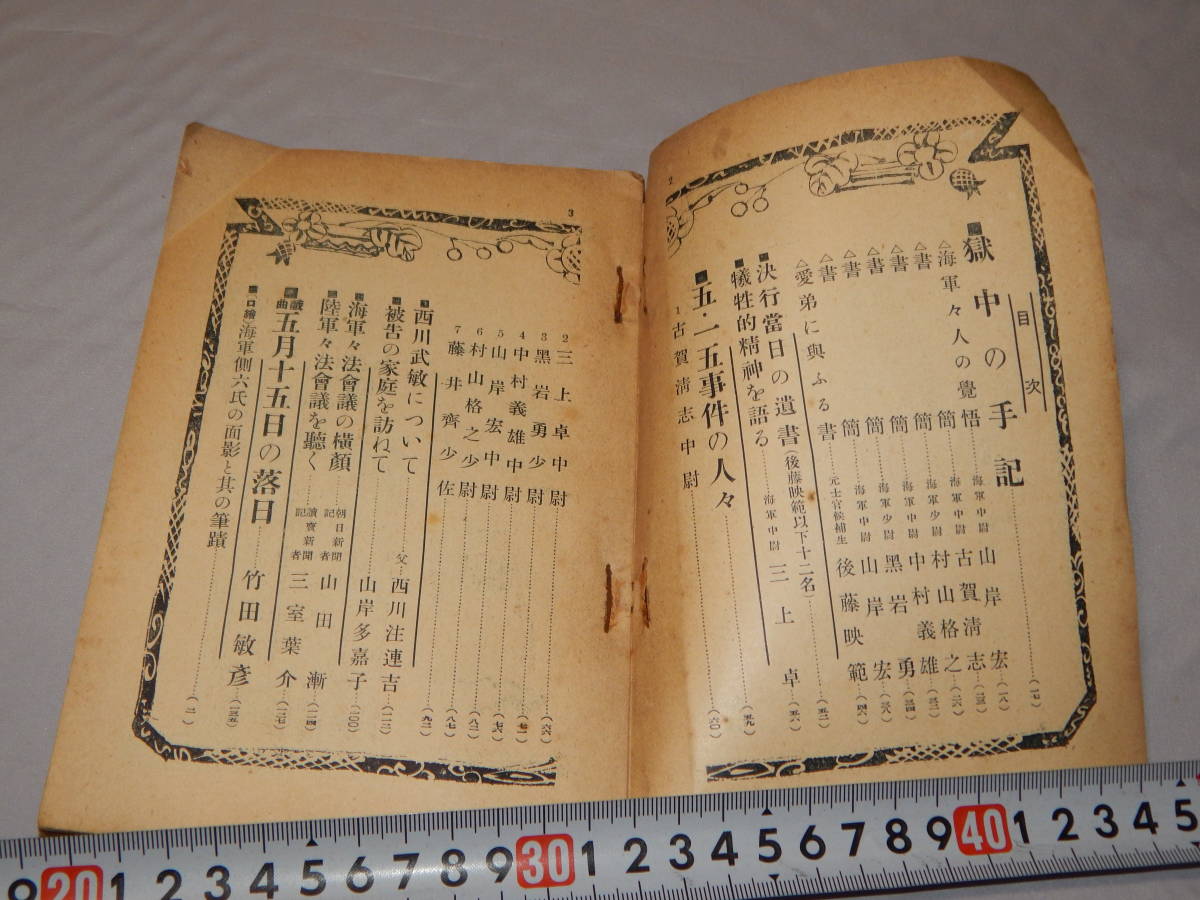 2
目次
■獄中の手記……(一七)
△海軍々人の覺悟 海軍中尉 山岸宏(一八)
△書簡 海軍中尉 古賀淸志
△書簡 海軍少尉 村山格之
△書簡 海軍中尉 中村義雄
△書簡 海軍少尉 黑岩勇
△書簡 海軍中尉 山岸宏
△愛弟に與ふる書 元士官候補生 後藤映範(四六)
■決行當日の遺書(後藤映範以下十二名)……(五二)
■犧牲的精神を語る……海軍中尉 三上卓(五六)
■五・一五事件の人々……(五九)
1 古賀淸志中尉……(六〇)
3
2 三上卓中尉……(六六)
3 黑岩勇少尉
4 中村義雄中尉
5 山岸宏中尉
6 村山格之少尉……(八二)
7 藤井齊少佐……(八七)
■西川武敏について……父…西川注連吉(九二)
■被告の家庭を訪ねて……山岸多嘉子
■海軍々法會議の橫顏 朝日新聞記者 山田漸
■陸軍々法會議を聽く 讀賣新聞記者 三室葉介
■戲曲 五月十五日の落日……竹田敏彥(一三五)
■口繪 海軍側六氏の面影と其の筆蹟……(一)
9 20 1 2 3 4 5 6 7 8 9 30 1 2 3 4 5 6 7 8 9 40 1 2 3 4 5